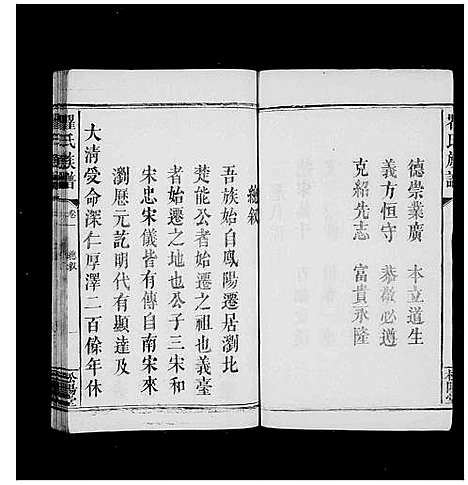 德崇業廣　本立道生
義方恒守　恭敬必遵
克紹先志　富貴永隆
總叙
吾族始自鳳陽遷居瀏北
梵能公者始遷之祖也義臺
者始遷之地也公子三宋和
宋忠宋儀皆有傳自南宋來
瀏歷元訖明代有顯達及
大清受命深仁厚澤二百餘年休
瞿氏族譜
卷一
總叙